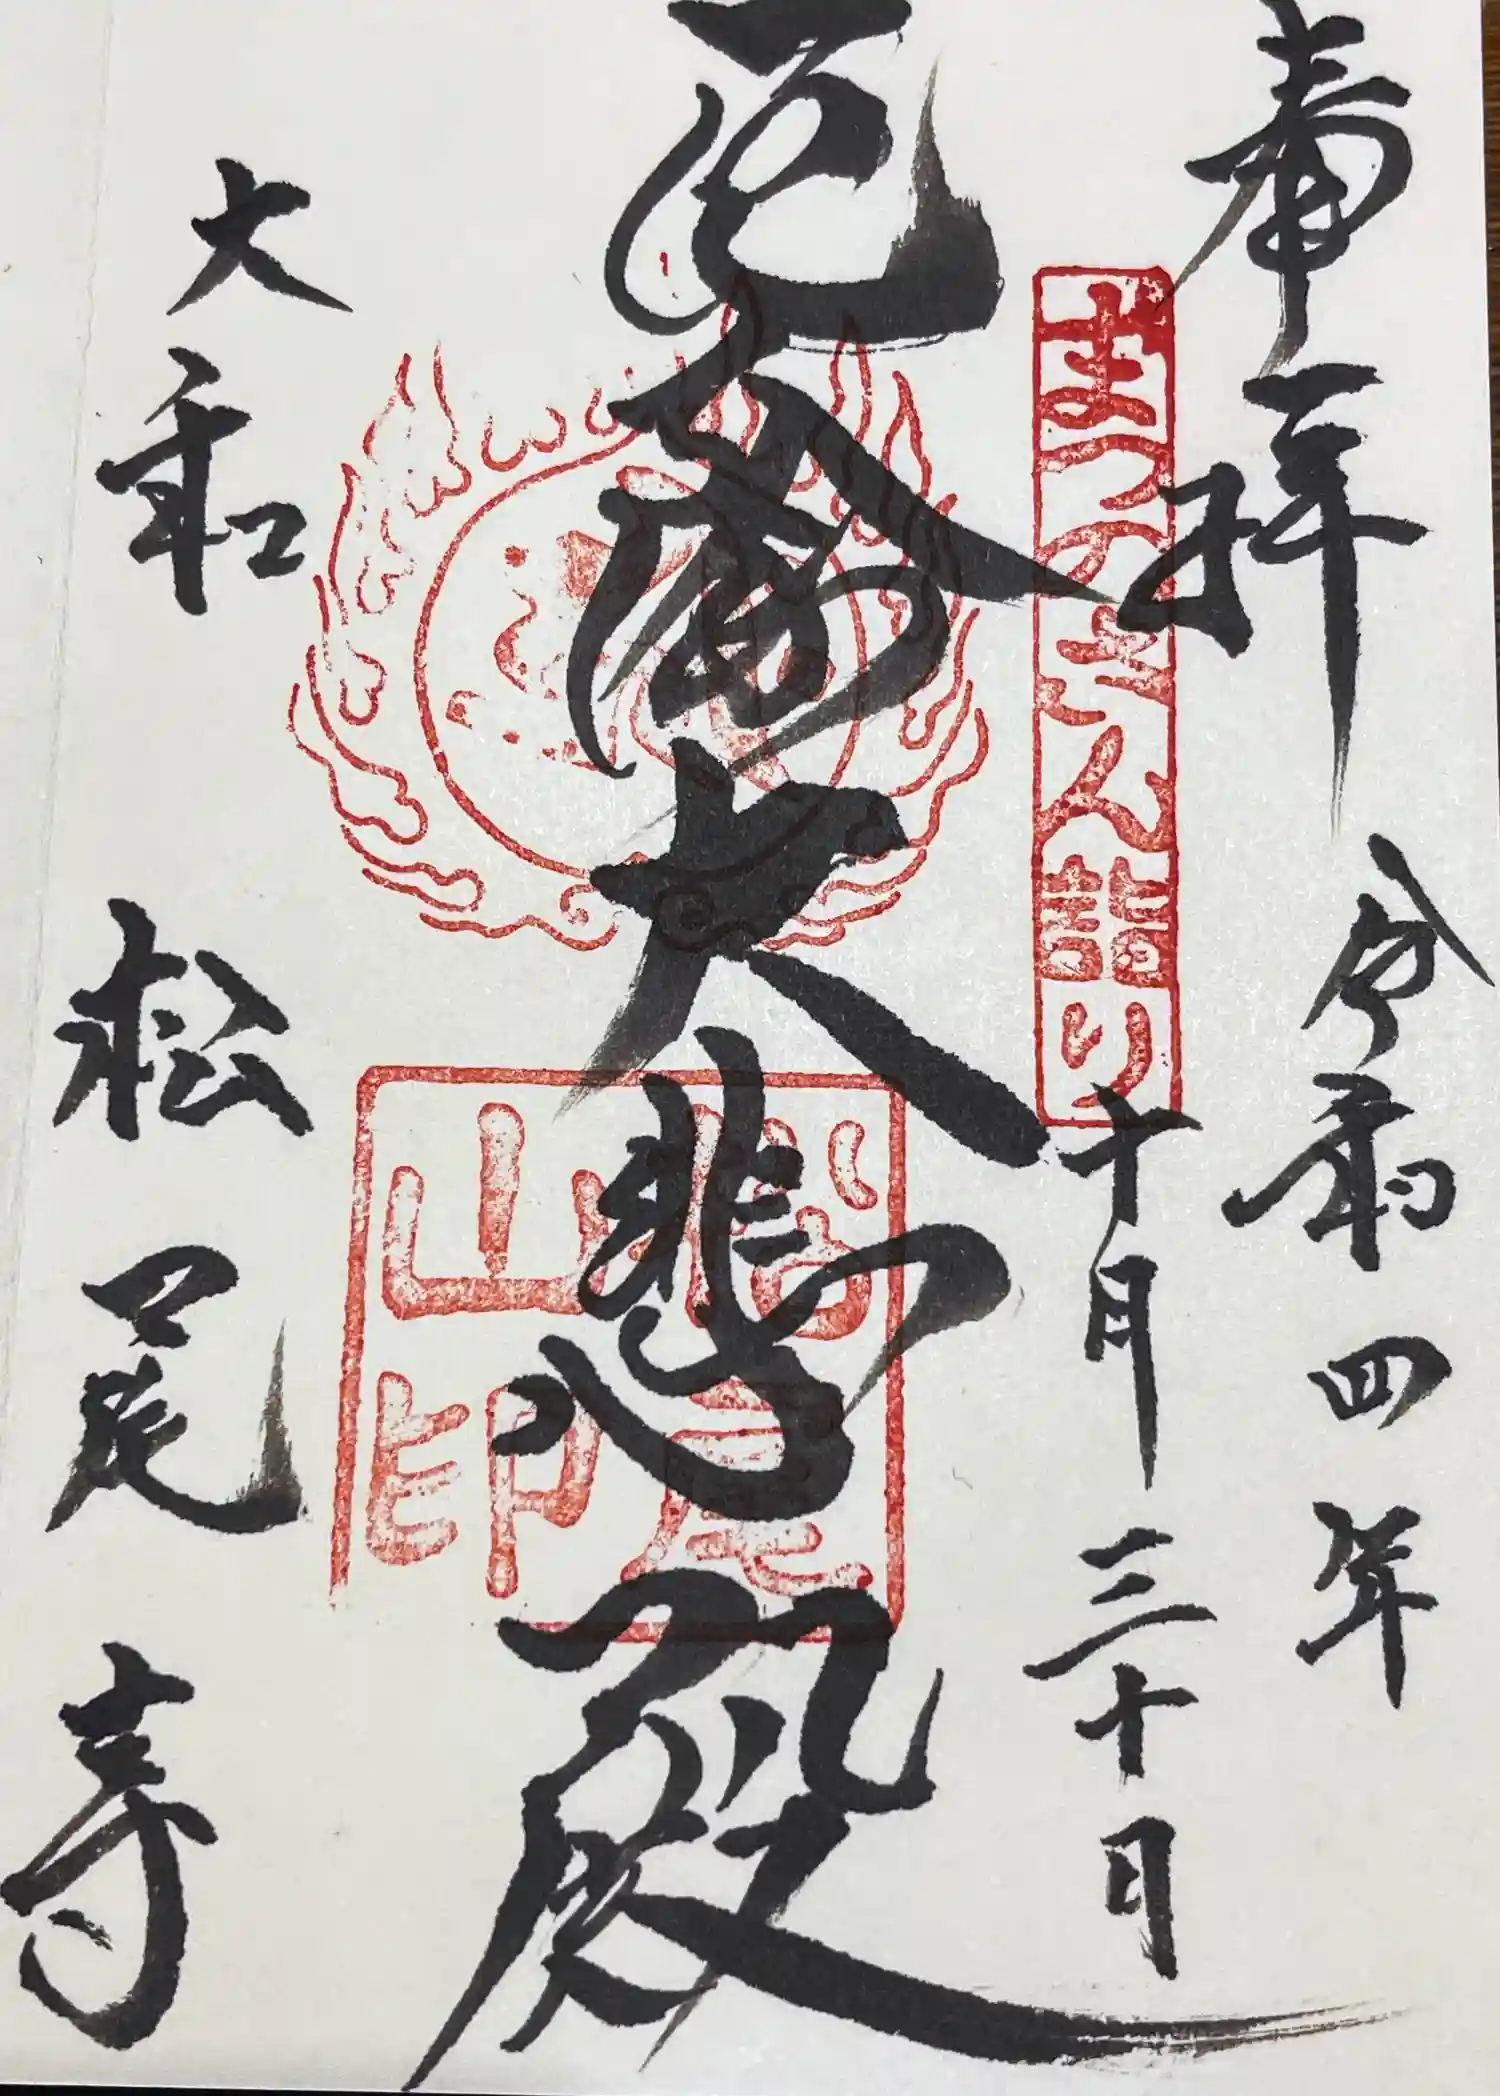 奉拝
令和四年
十月三十日
まつのさん詣り
大悲殿
松尾
山印
大和 松尾寺